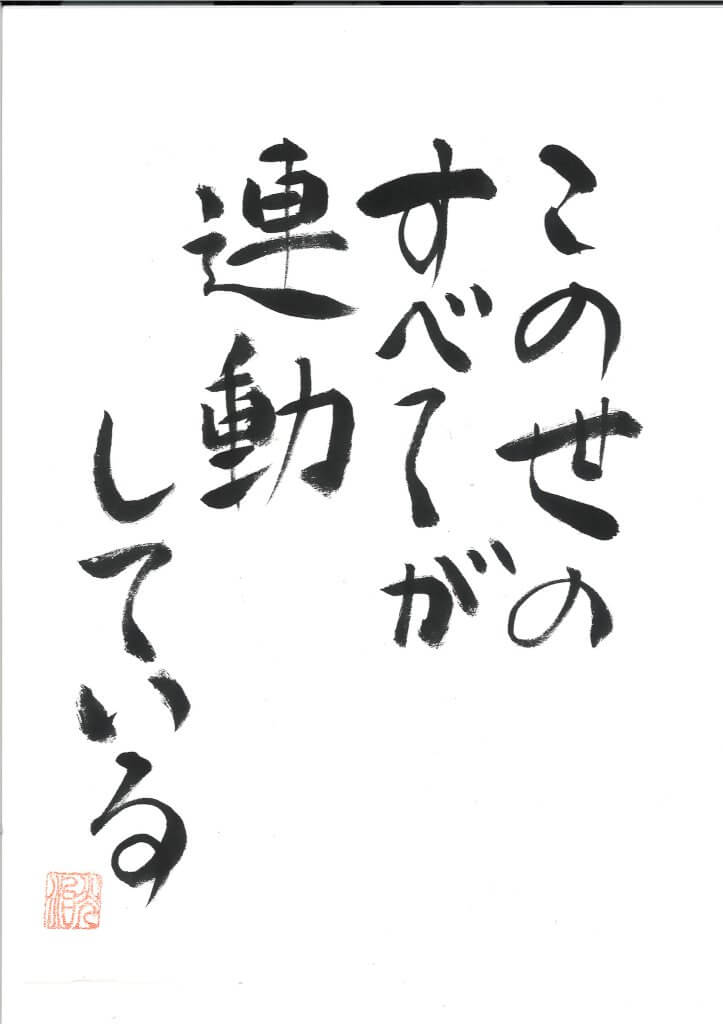 この世の
すべてが
連動
している